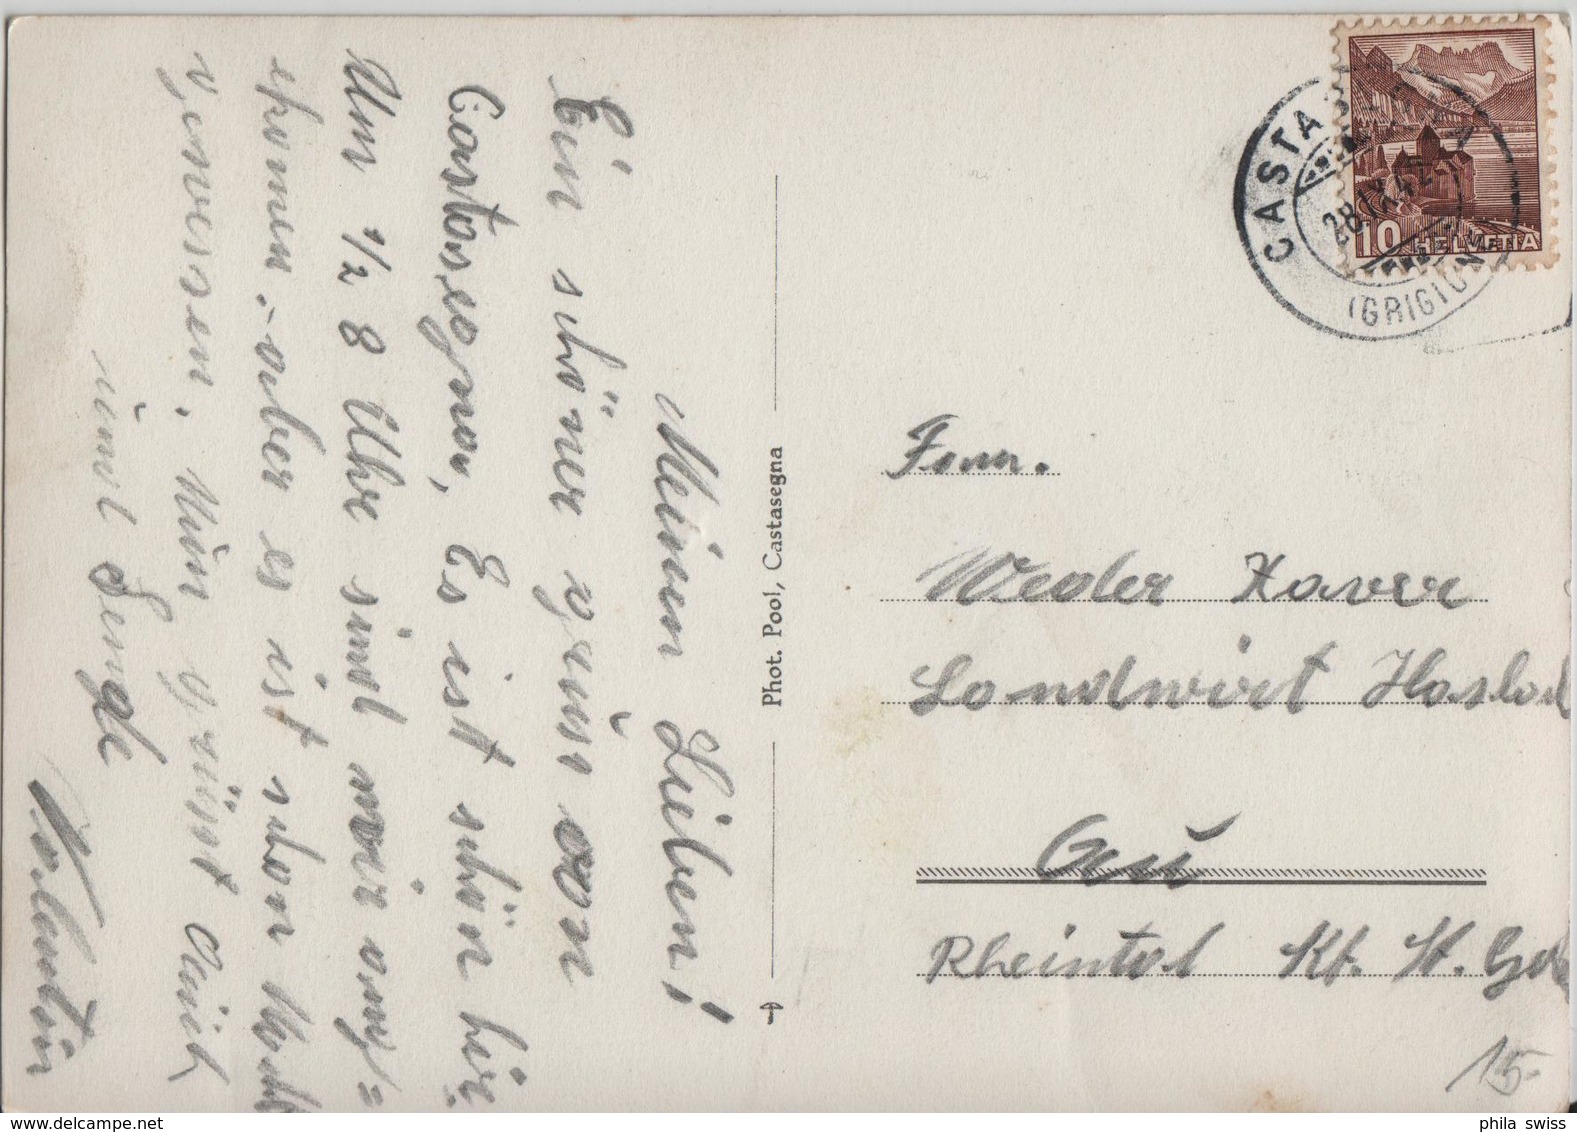 Meinen Lieben!
Ein schöner gruss von
Castasegna, Es ist schön hir
Um 1/2 8 Uhr sind wir ang=
ekomen. aber es ist schon Nacht
gewessen. Nun grüsst Euch
und
Valentin
Phot. Pool, Castasegna
CASTASEGNA
28.IX.42
(GRIGIONI)
10 HELVETIA
Fam.
Weder Xaver
Landwirt Haslach
Au
Rheintal Kt. St. Ga
15-
phila swiss